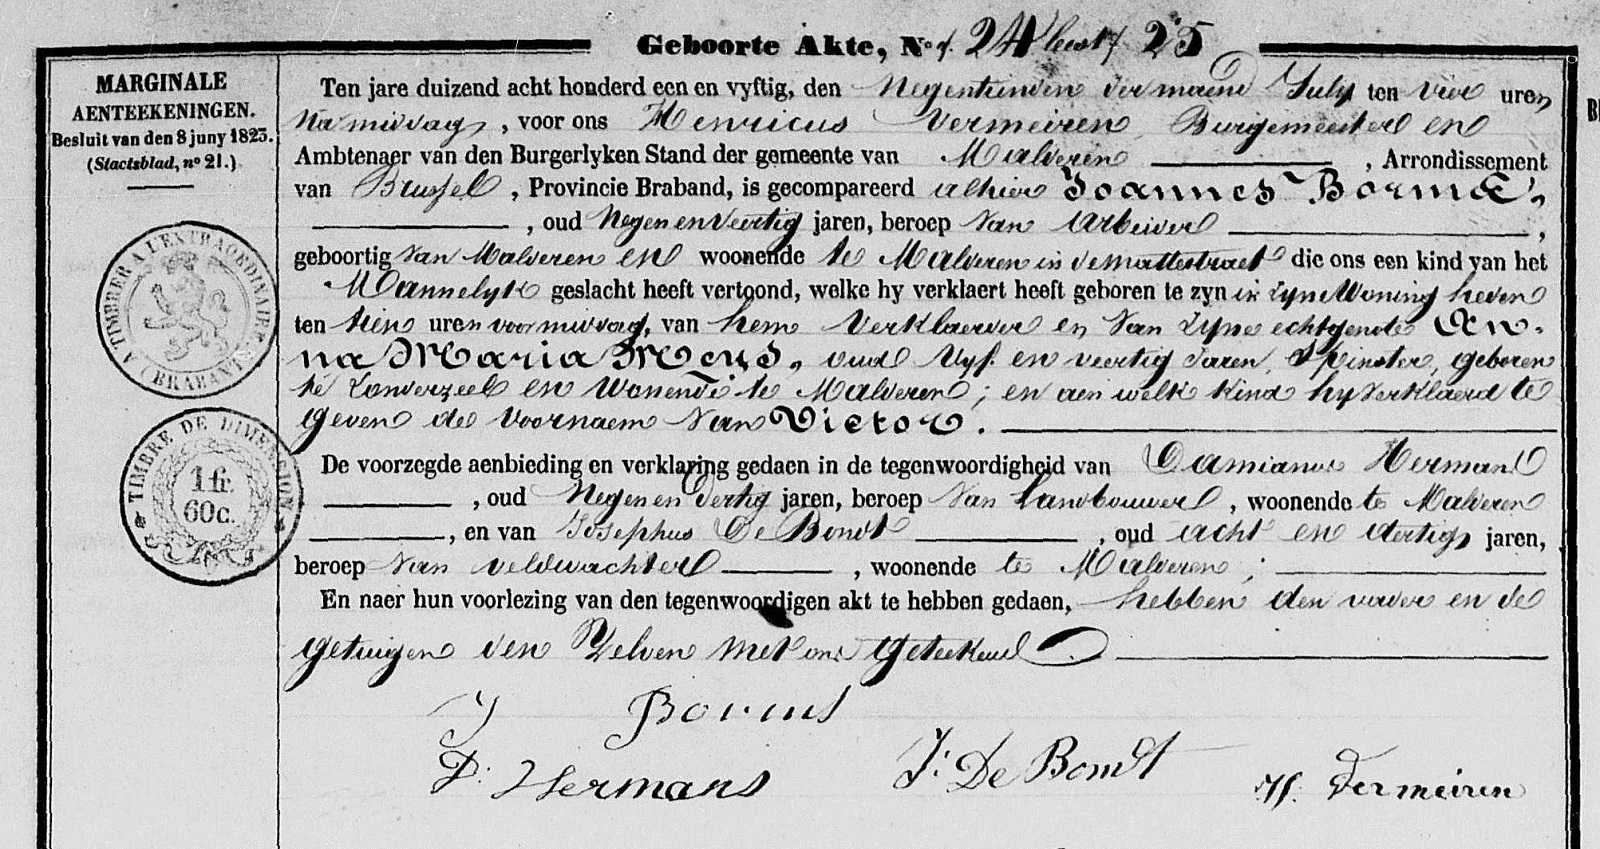 Geboorte Akte, No 24 25
MARGINALE
AENTEEKENINGEN.
Besluit van den 8 juny 1823.
(Stactsblad, no 21.)
A TIMBRER A L'EXTRAORDINAIRE
(BRABANT)
TIMBRE DE DIMENSION
1 fr.
60 c.
Ten jare duizend acht honderd een en vyftig, den Negentienden der maend July ten vier uren
Namiddag, voor ons Henricus Vermeiren, Burgemeester en
Ambtenaer van den Burgerlyken Stand der gemeente van Malderen, Arrondissement
van Brussel, Provincie Braband, is gecompareerd alhier Joannes Borms,
, oud Negen en Veertig jaren, beroep van arbeider,
geboortig van Malderen en woonende te Malderen in de mattestraet die ons een kind van het
Mannelyk geslacht heeft vertoond, welke hy verklaert heeft geboren te zyn in zyne Woning heden
ten tien uren voormiddag, van hem Verklaerder en van zyne echtgenote An-
na Maria Meys, oud vyf en veertig Jaren, Spinster, geboren
te Londerzeel en Wonende te Malderen; en aen welk kind hy verklaerd te
geven de Voornaem van Victor.
De voorzegde aenbieding en verklaring gedaen in de tegenwoordigheid van Damianus Hermans
, oud Negen en Dertig jaren, beroep van landbouwer, woonende te Malderen
, en van Josephus De Bondt, oud acht en dertig jaren,
beroep van veldwachter, woonende te Malderen;
En naer hun voorlezing van den tegenwoordigen akt te hebben gedaen, hebben den vader en de
getuigen den Zelven met ons geteekend.
J Borms
D. Hermans
J. De Bondt
H. Vermeiren